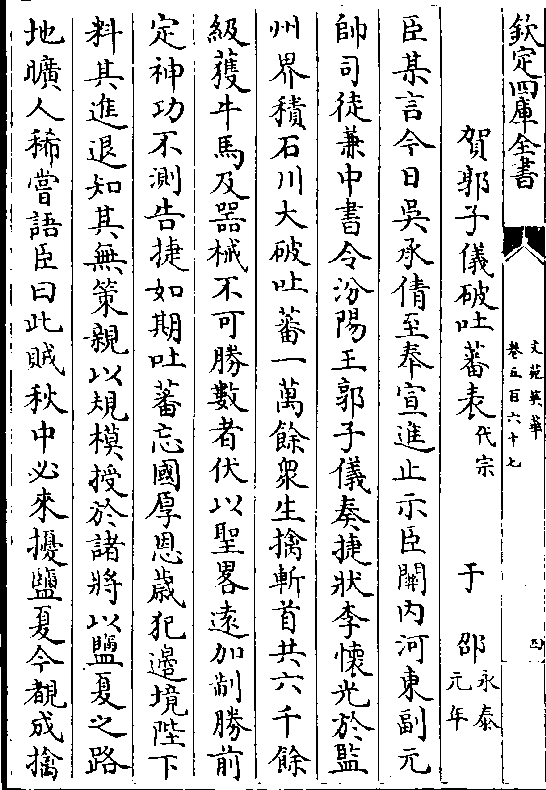 欽定四庫全書
文苑英華
卷五百六十七
四
賀郭子儀破吐蕃表代宗 于邵永泰元年
臣某言今日吳承倩至奉宣進止示臣關内河東副元
帥司徒兼中書令汾陽王郭子儀奏捷狀李懷光於監
州界積石川大破吐蕃一萬餘衆生擒斬首共六千餘
級獲牛馬及器械不可勝數者伏以聖畧遠加制勝前
定神功不測告捷如期吐蕃忘國厚恩歲犯邉境陛下
料其進退知其無策親以規模授於諸將以鹽夏之路
地曠人稀嘗語臣曰此賊秋中必來擾鹽夏今覩成擒